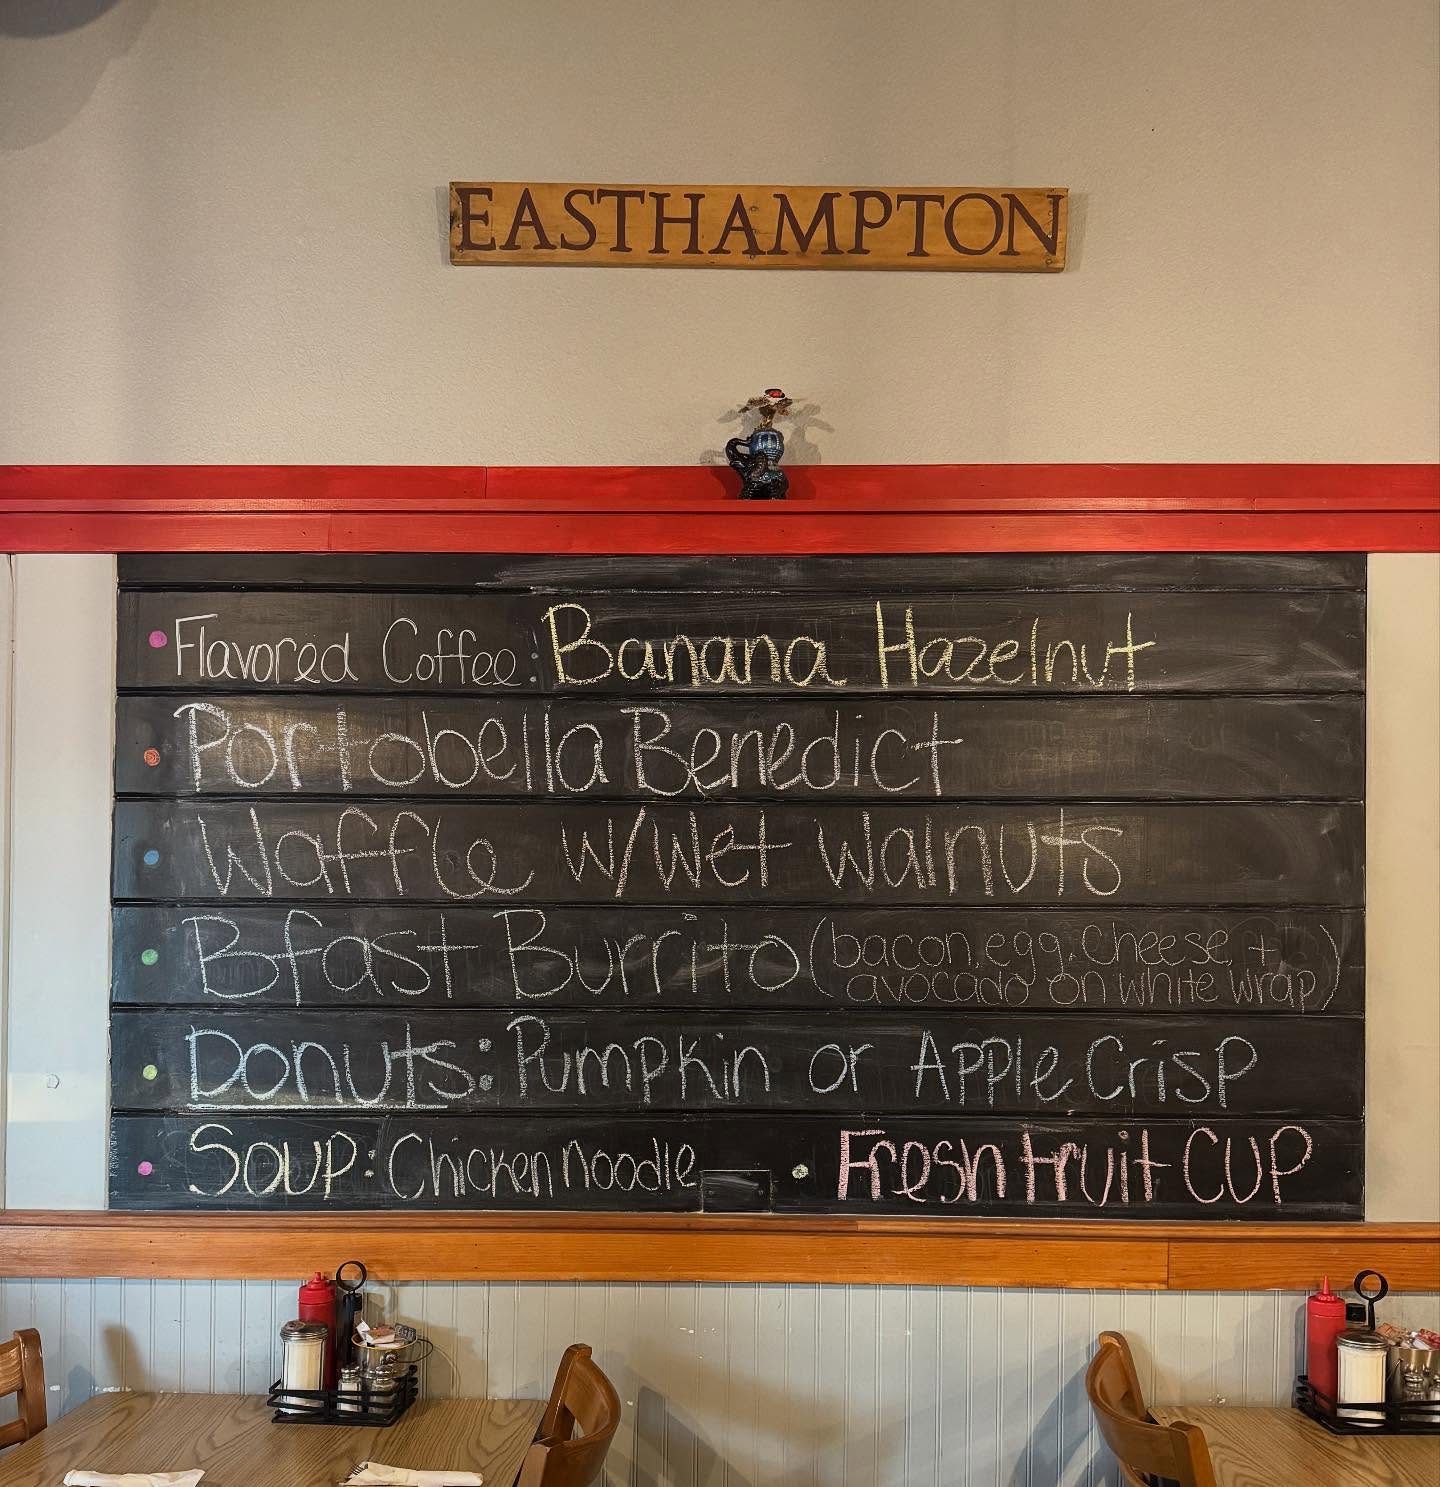 EASTHAMPTON
Flavored Coffee: Banana Hazelnut
Portobella Benedict
Waffle w/ Wet Walnuts
Bfast Burrito (bacon, egg, cheese, +
avocado on white wrap)
Donuts: Pumpkin or Apple Crisp
Soup: Chicken noodle
Fresh Fruit Cup